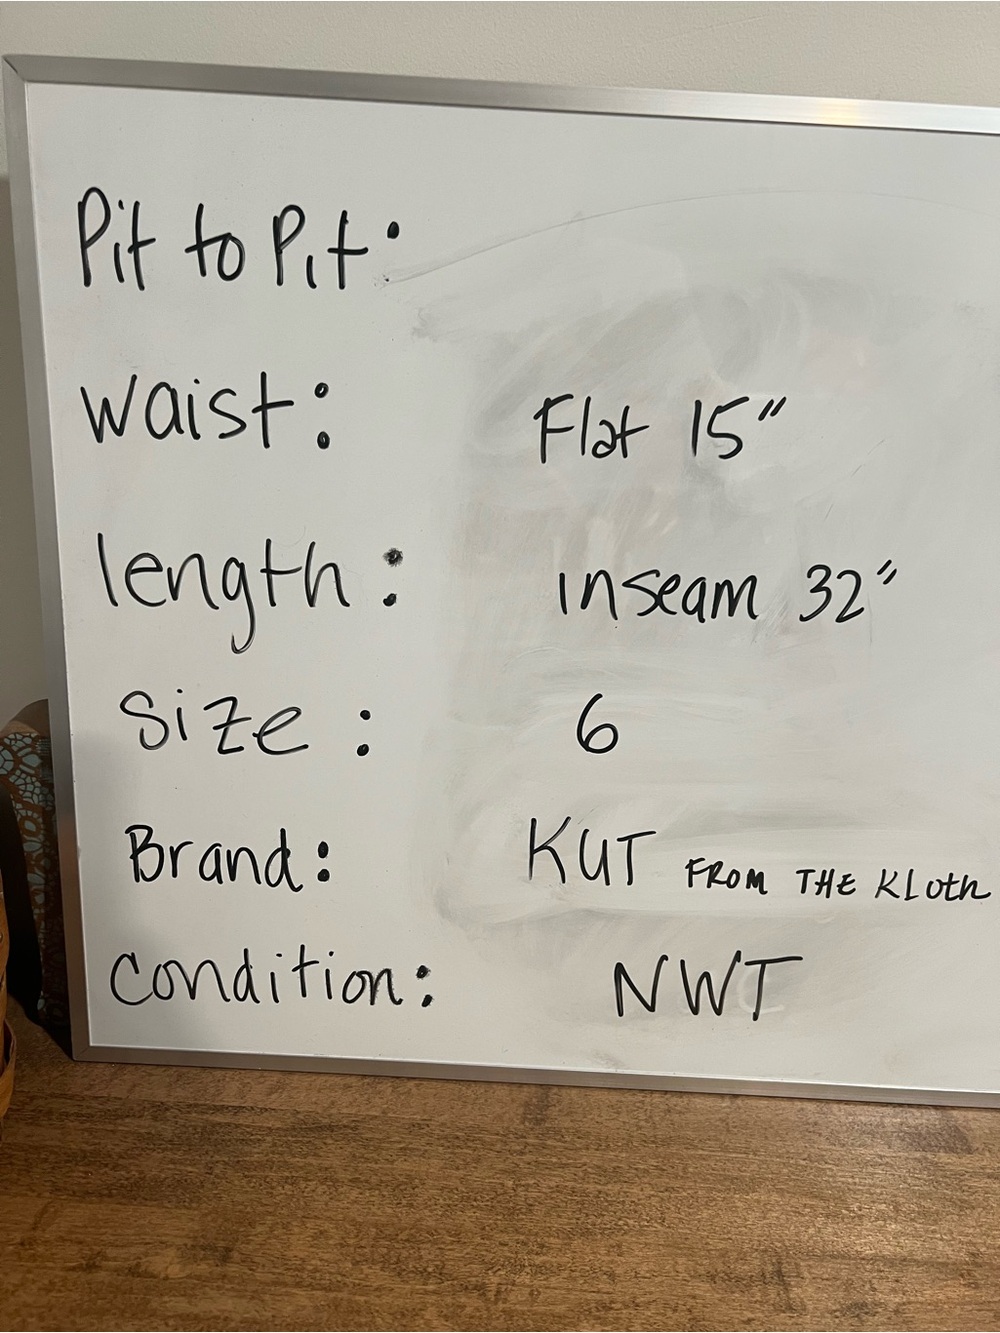 Pit to Pit:
waist: Flat 15"
length: inseam 32"
Size: 6
Brand: KUT FROM THE KLoth
Condition: NWT